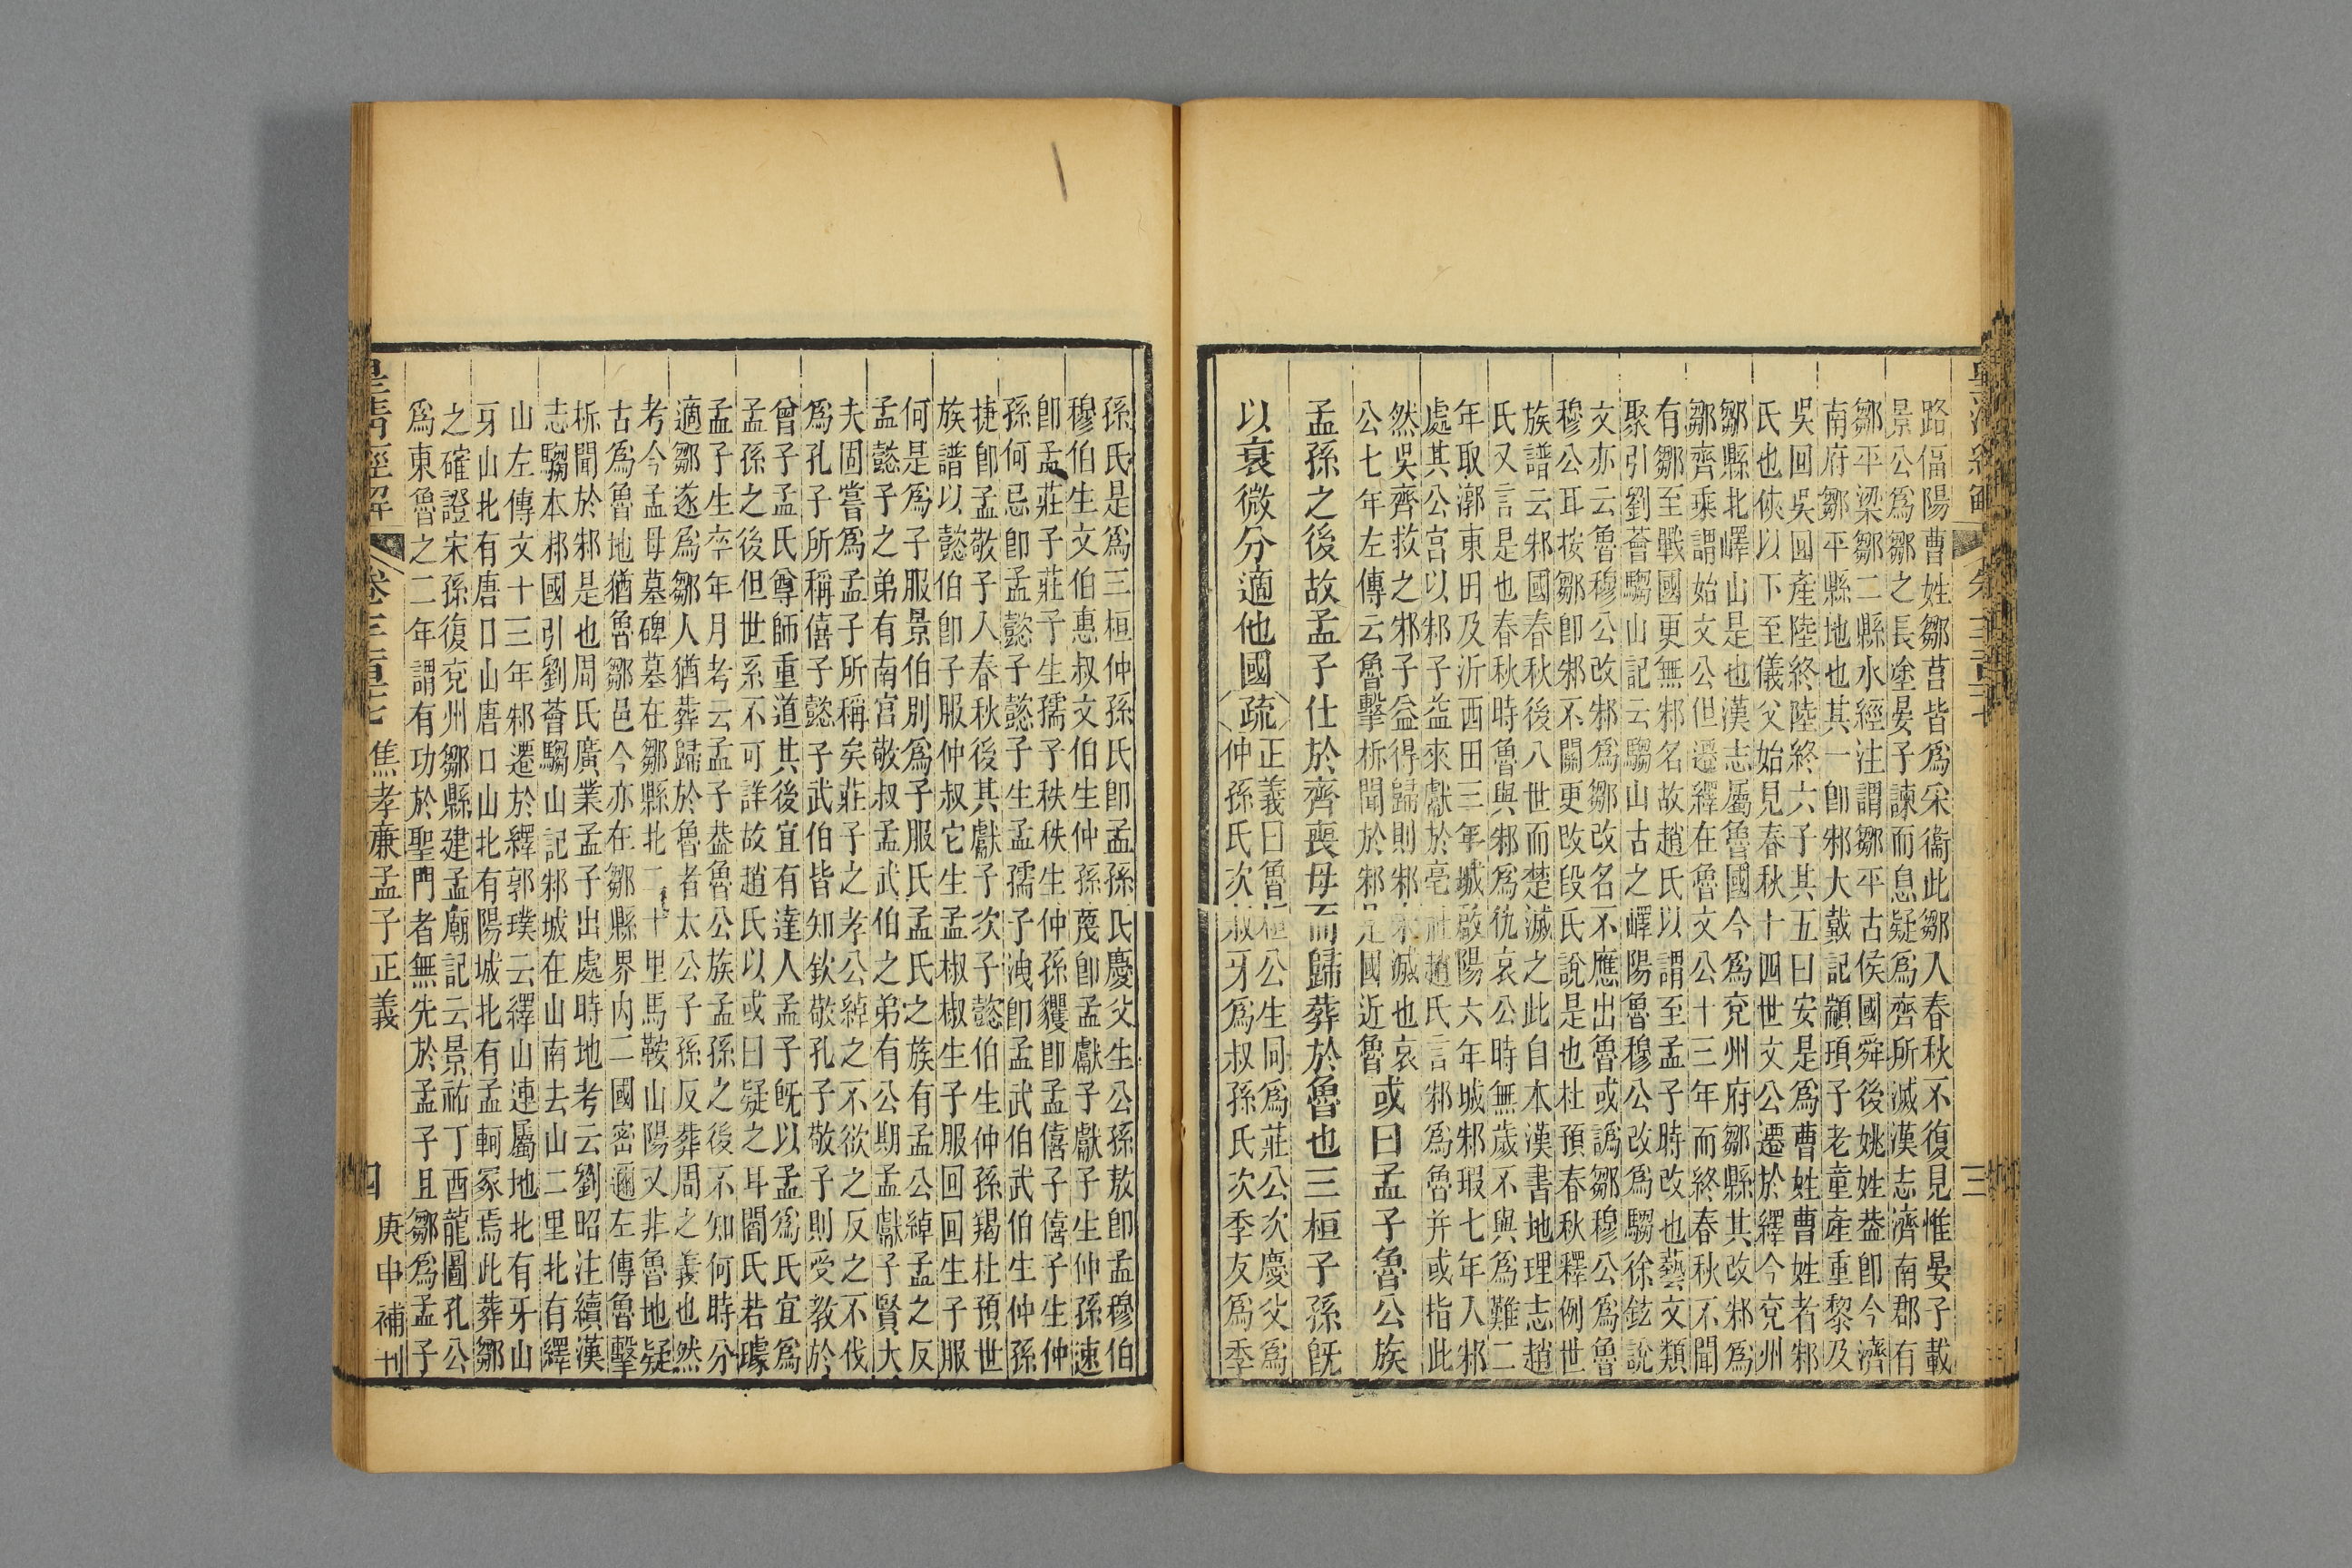 路偪陽曹姓鄒莒皆爲采衞此鄒人春秋不復見惟晏子載
景公爲鄒之長塗晏子諫而息疑爲齊所滅漢志濟南郡有
鄒平梁鄒二縣水經注謂鄒平古侯國舜後姚姓葢卽今濟
南府鄒平縣地也其一卽邾大戴記顓頊子老童產重黎及
吳回吳回產陸終陸終六子其五曰安是爲曹姓曹姓者邾
氏也俠以下至儀父始見春秋十四世文公遷於繹今兗州
鄒縣北嶧山是也漢志屬魯國今爲兗州府鄒縣其改邾爲
鄒齊乘謂始文公但遷繹在魯文公十三年而終春秋不聞
有鄒至戰國更無邾名故趙氏以謂至孟子時改也藝文類
聚引劉薈騶山記云騶山古之嶧陽魯穆公改爲騶徐鉉說
文亦云魯穆公改邾爲鄒改名不應出魯或譌鄒穆公爲魯
穆公耳按鄒卽邾不關更改段氏說是也杜預春秋釋例世
族譜云邾國春秋後八世而楚滅之此自本漢書地理志趙
氏又言是也春秋時魯與邾爲仇哀公時無歲不與爲難二
年取漷東田及沂西田三年城啟陽六年城邾瑕七年入邾
處其公宮以邾子益來獻於亳社趙氏言邾爲魯并或指此
然吳齊救之邾子益得歸則邾未滅也哀
公七年左傳云魯擊柝聞於邾是國近魯
或曰孟子魯公族
孟孫之後故孟子仕於齊喪母而歸葬於魯也三桓子孫旣
以衰微分適他國疏
正義曰魯桓公生同爲莊公次慶父爲
仲孫氏次叔牙爲叔孫氏次季友爲季
三
孫氏是爲三桓仲孫氏卽孟孫氏慶父生公孫敖卽孟穆伯
穆伯生文伯惠叔文伯生仲孫蔑卽孟獻子獻子生仲孫速
卽孟莊子莊子生孺子秩秩生仲孫貜卽孟僖子僖子生仲
孫何忌卽孟懿子懿子生孟孺子洩卽孟武伯武伯生仲孫
捷卽孟敬子入春秋後其獻子次子懿伯生仲孫羯杜預世
族譜以懿伯卽子服仲叔它生孟椒椒生子服回回生子服
何是爲子服景伯別爲子服氏孟氏之族有孟公綽孟之反
孟懿子之弟有南宮敬叔孟武伯之弟有公期孟獻子賢大
夫固嘗爲孟子所稱矣莊子之孝公綽之不欲之反之不伐
爲孔子所稱僖子懿子武伯皆知欽敬孔子敬子則受教於
曾子孟氏尊師重道其後宜有達人孟子旣以孟爲氏宜爲
孟孫之後但世系不可詳故趙氏以或曰疑之耳閻氏若璩
孟子生卒年月考云孟子葢魯公族孟孫之後不知何時分
適鄒遂爲鄒人猶葬歸於魯者太公子孫反葬周之義也然
考今孟母墓碑墓在鄒縣北二十里馬鞍山陽又非魯地疑
古爲魯地猶魯鄒邑今亦在鄒縣界內二國密邇左傳魯擊
柝聞於邾是也周氏廣業孟子出處時地考云劉昭注續漢
志騶本邾國引劉薈騶山記邾城在山南去山二里北有繹
山左傳文十三年邾遷於繹郭璞云繹山連屬地北有牙山
牙山北有唐口山唐口山北有陽城北有孟軻冢焉此葬鄒
之確證宋孫復兗州鄒縣建孟廟記云景祐丁酉龍圖孔公
爲東魯之二年謂有功於聖門者無先於孟子且鄒爲孟子
皇清經解 卷千一百十七 焦孝廉孟子正義 四 庚申補刊